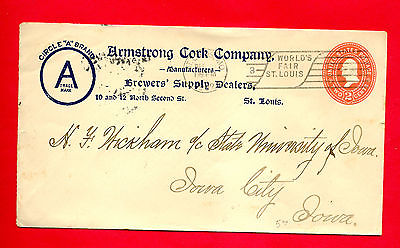 CIRCLE "A" BRAND
A
TRADE
MARK
Armstrong Cork Company,
Manufacturers
Brewers' Supply Dealers,
10 and 12 North Second St. St. Louis.
3
WORLD'S
FAIR
ST. LOUIS
UNITED STATES
2
N. F. Wickham c/o State University of Iowa
Iowa City
Iowa.